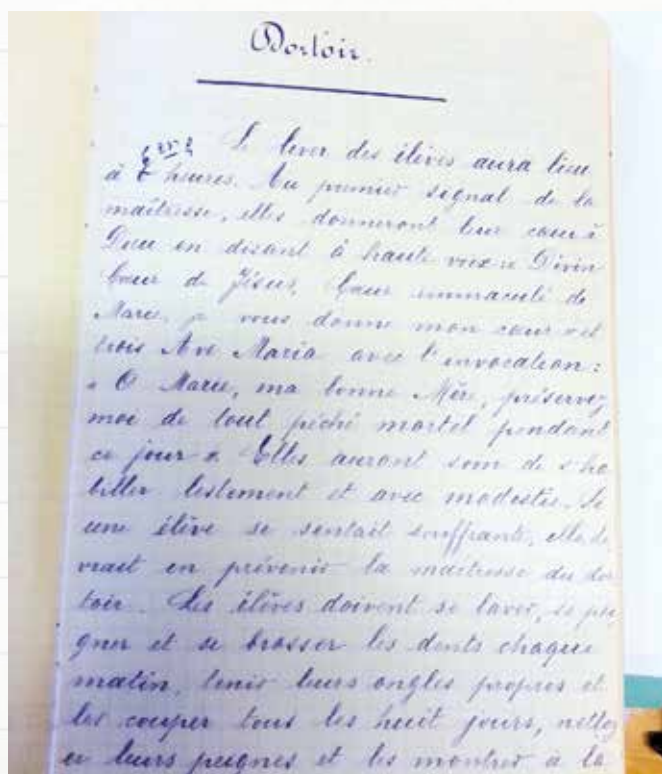 Dortoir.
Le lever des élèves aura lieu
à heures. Au premier signal de la
maîtresse, elles donneront leur cœur à
Dieu en disant à haute voix « Divin
Cœur de Jésus, Cœur immaculé de
Marie, je vous donne mon cœur » et
trois Ave Maria avec l'invocation :
« O Marie, ma bonne Mère, préservez
moi de tout péché mortel pendant
ce jour ». Elles auront soin de s'ha
biller lestement et avec modestie. Si
une élève se sentait souffrante, elle de
vrait en prévenir la maîtresse du dor
toir. Les élèves doivent se laver, se pei
gner et se brosser les dents chaque
matin, tenir leurs ongles propres et
les couper tous les huit jours, nettoy
er leurs peignes et les montrer à la